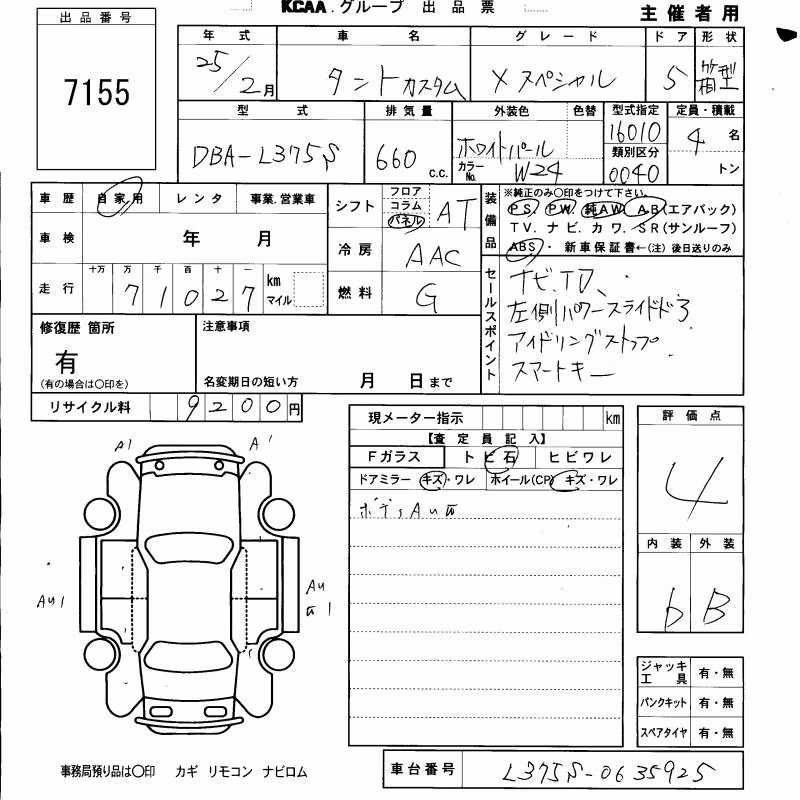 KCAA.グループ 出品票
主催者用
出品番号
7155
年式 車名 グレード ドア 形状
25/2月 タントカスタム Xスペシャル 5 箱型
型式 排気量 外装色 色替 型式指定 定員・積載
DBA-L375S 660 c.c. ホワイトパール 16010 4 名
カラーNo. W24 類別区分 0040 トン
車歴 自家用 レンタ 事業.営業車
シフト フロア コラム パネル AT
装備品 ※純正のみ〇印をつけて下さい。
PS. PW. 純AW. AB(エアバック)
TV. ナビ. カワ. SR(サンルーフ)
ABS・ 新車保証書←(注)後日送りのみ
車検 年 月
冷房 AAC
走行 十万 万 千 百 十 一
71027 km マイル
燃料 G
セールスポイント
ナビ、TV、
左側パワースライドドア
アイドリングストップ
スマートキー
修復歴 箇所
有
(有の場合は〇印を)
注意事項
名変期日の短い方 月 日まで
リサイクル料 9200円
現メーター指示 km
【査定員記入】
Fガラス トビ石 ヒビワレ
ドアミラー キズ・ワレ ホイール(CP) キズ・ワレ
評価点
4
内装 外装
b B
A1 A1
AU1
AU
1
ジャッキ工具 有・無
パンクキット 有・無
スペアタイヤ 有・無
事務局預り品は〇印 カギ リモコン ナビロム
車台番号 L375S-0635925